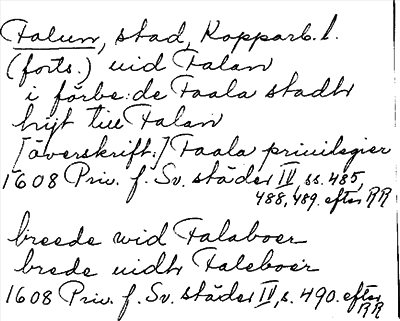 Falun, stad, Kopparb. l.
(forts.) uid Falan
i förbe:de Faala stadh
hijt till Falan
[överskrift:] Faala priuilegier
1608 Priv. f. Sv. städer IV, ss. 485,
488, 489. efter RR
breede wid Falaboer
brede uidh Faleboer
1608 Priv. f. Sv. städer IV, s. 490. efter
RR